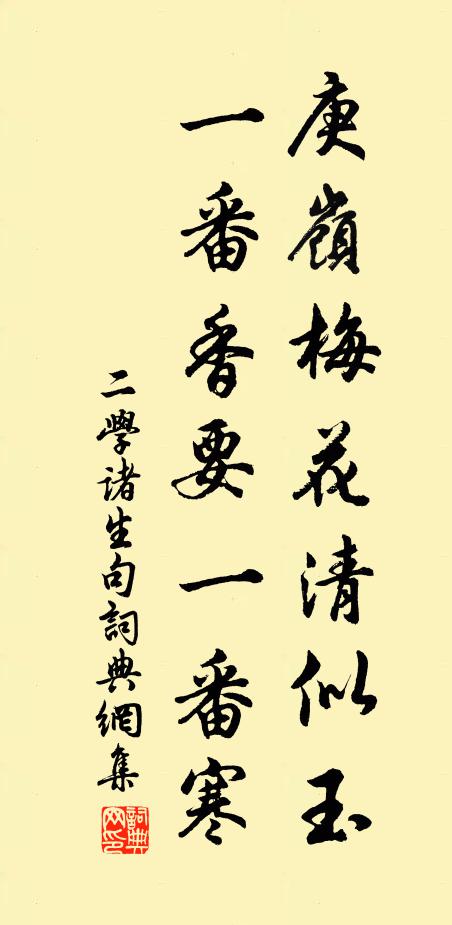 庚嶺梅花清似玉
一番香要一番寒
二學諸生句詞典網集
詞典
网印